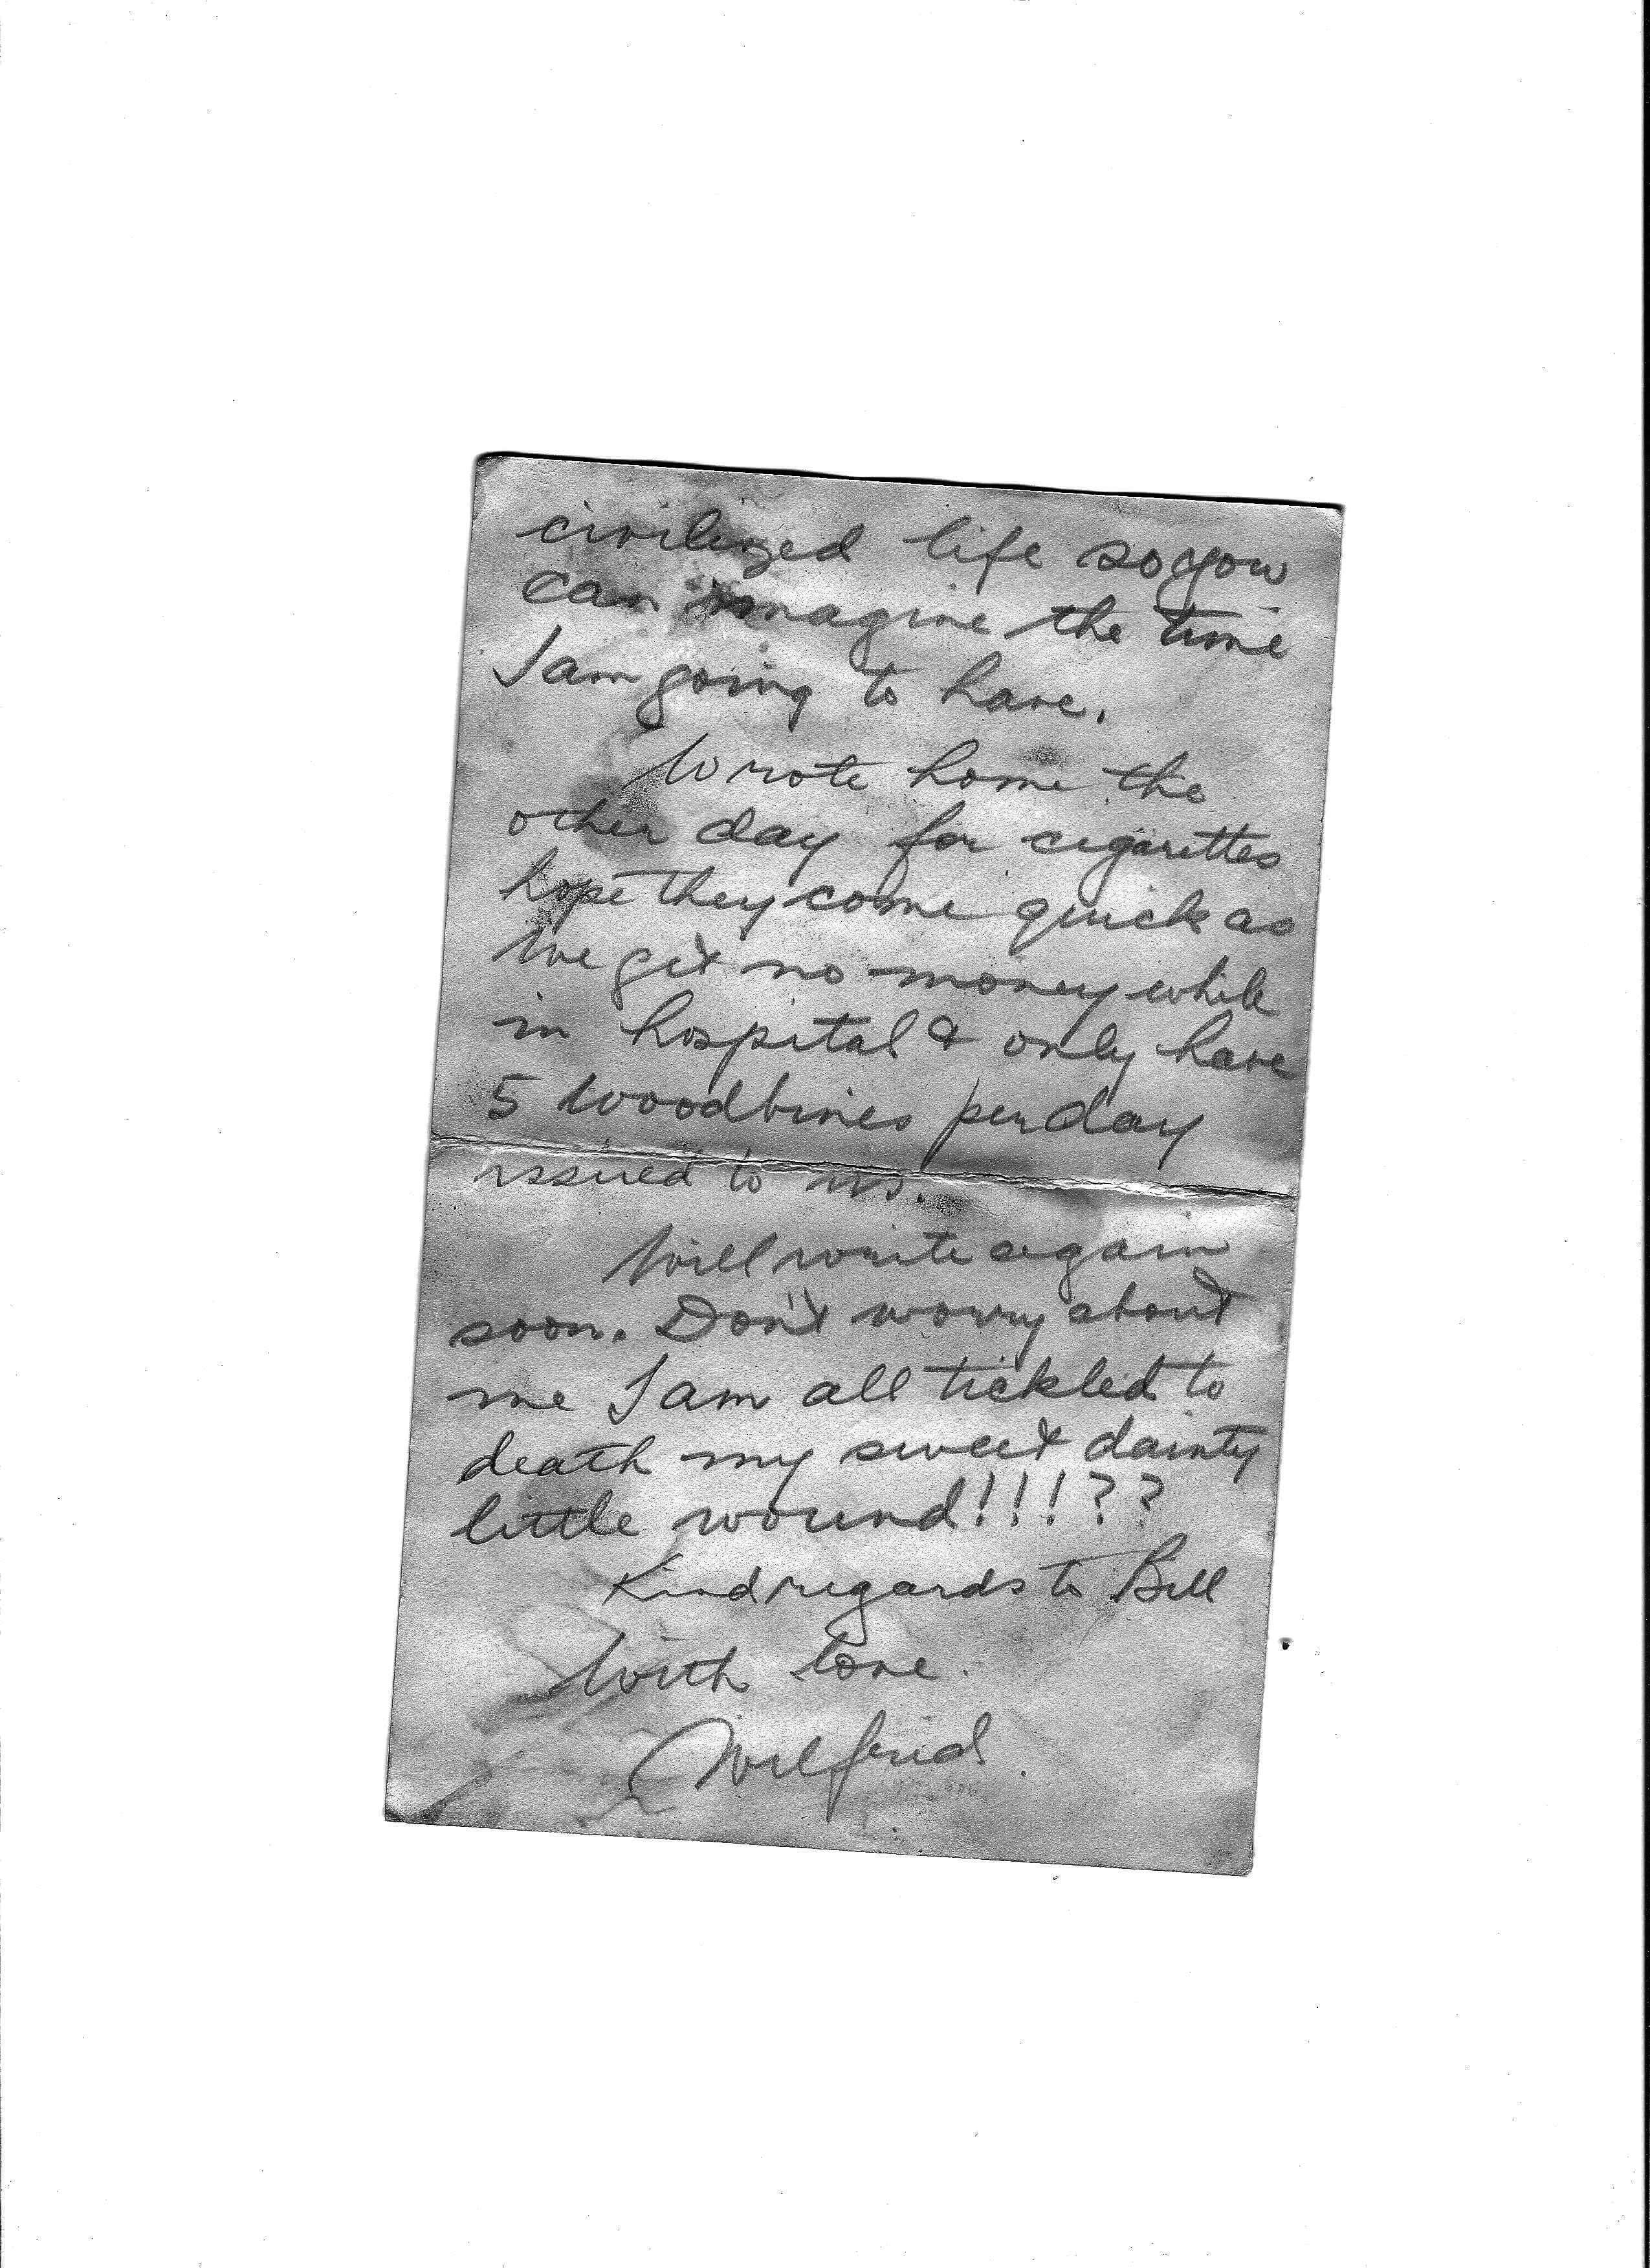 civilized life so you
can imagine the time
I am going to have.
Wrote home the
other day for cigarettes
hope they come quick as
we get no money while
in hospital & only have
5 Woodbines per day
issued to us.
Will write again
soon. Don't worry about
me I am all tickled to
death my sweet dainty
little wound!!!??
Kind regards to Bill
With love.
Wilfrid.